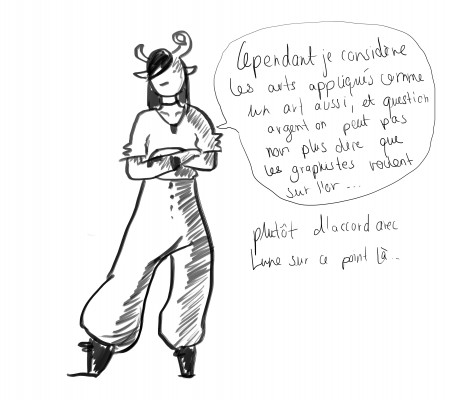 Cependant je considère
les arts appliqués comme
un art aussi, et question
argent on peut pas
non plus dire que
les graphistes roulent
sur l'or ...
plutôt d'accord avec
Lune sur ce point là..